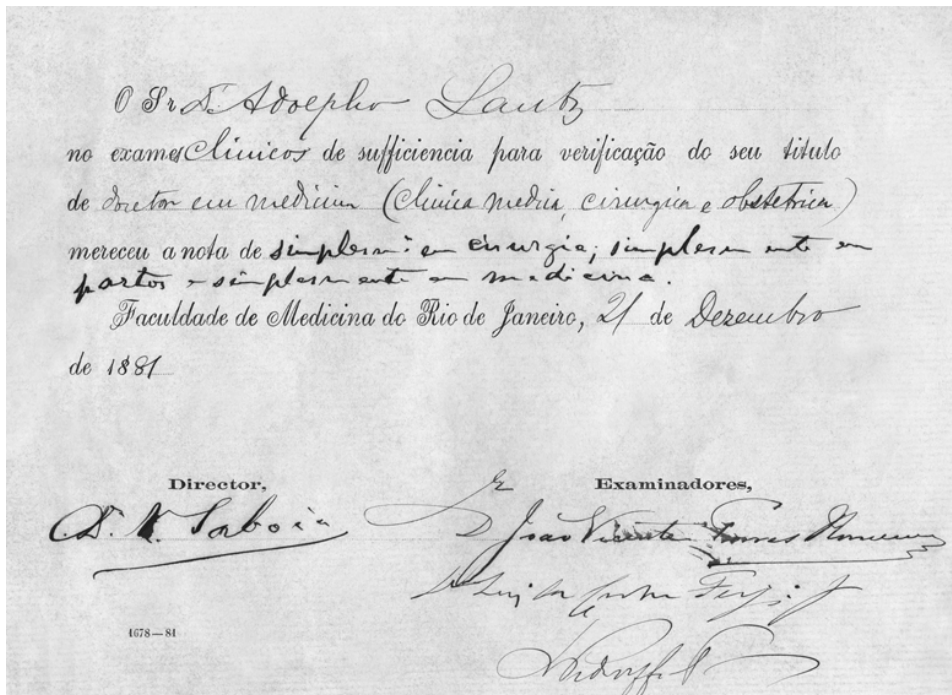 O Sr Dr. Adolpho Lantz
no exames Clinicos de sufficiencia para verificação do seu titulo
de doutor em medicina (clinica medica, cirurgica e obstetrica)
mereceu a nota de simplesm.te em cirurgia; simplesmente em
partos e simplesmente em medicina.
Faculdade de Medicina do Rio de Janeiro, 21 de Dezembro
de 1881
Director,
Examinadores,
Dr. V. Saboia
Dr João Vicente Torres Homem
Dr Luiz da Cunha Feijó Jr
1678—81